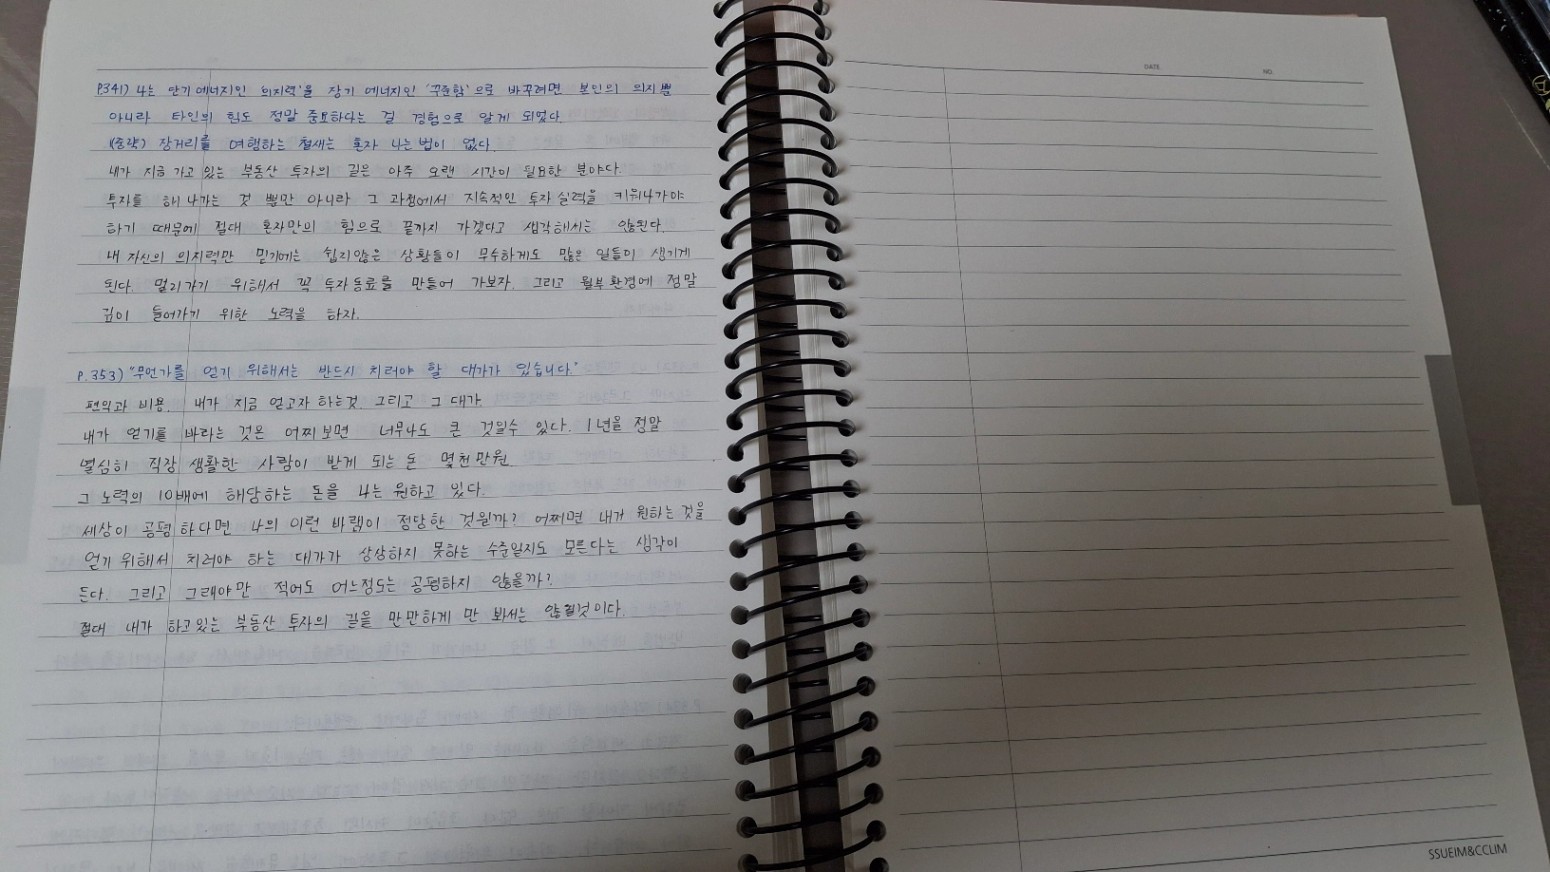 P.341) 나는 단기 에너지인 '의지력'을 장기 에너지인 '꾸준함'으로 바꾸려면 본인의 의지뿐
아니라 타인의 힘도 정말 중요하다는 걸 경험으로 알게 되었다.
(중략) 장거리를 여행하는 철새는 혼자 나는 법이 없다.
내가 지금 가고 있는 부동산 투자의 길은 아주 오랜 시간이 필요한 분야다.
투자를 해 나가는 것 뿐만 아니라 그 과정에서 지속적인 투자 실력을 키워나가야
하기 때문에 절대 혼자만의 힘으로 끝까지 가겠다고 생각해서는 않된다.
내 자신의 의지력만 믿기에는 쉽지않은 상황들이 무수하게도 많은 일들이 생기게
된다. 멀리가기 위해서 꼭 투자동료를 만들어 가보자. 그리고 월부 환경에 정말
깊이 들어가기 위한 노력을 하자.
P.353) "무언가를 얻기 위해서는 반드시 치러야 할 대가가 있습니다."
편익과 비용. 내가 지금 얻고자 하는것. 그리고 그 대가.
내가 얻기를 바라는 것은 어찌 보면 너무나도 큰 것일수 있다. 1년을 정말
열심히 직장 생활한 사람이 받게 되는 돈 몇천만원.
그 노력의 10배에 해당하는 돈을 나는 원하고 있다.
세상이 공평하다면 나의 이런 바램이 정당한 것일까? 어쩌면 내가 원하는 것을
얻기 위해서 치러야 하는 대가가 상상하지 못하는 수준일지도 모른다는 생각이
든다. 그리고 그래야만 적어도 어느정도는 공평하지 않을까?
절대 내가 하고있는 부동산 투자의 길을 만만하게 만 봐서는 않될것이다.
DATE
NO.
SSUEIM&CCLIM